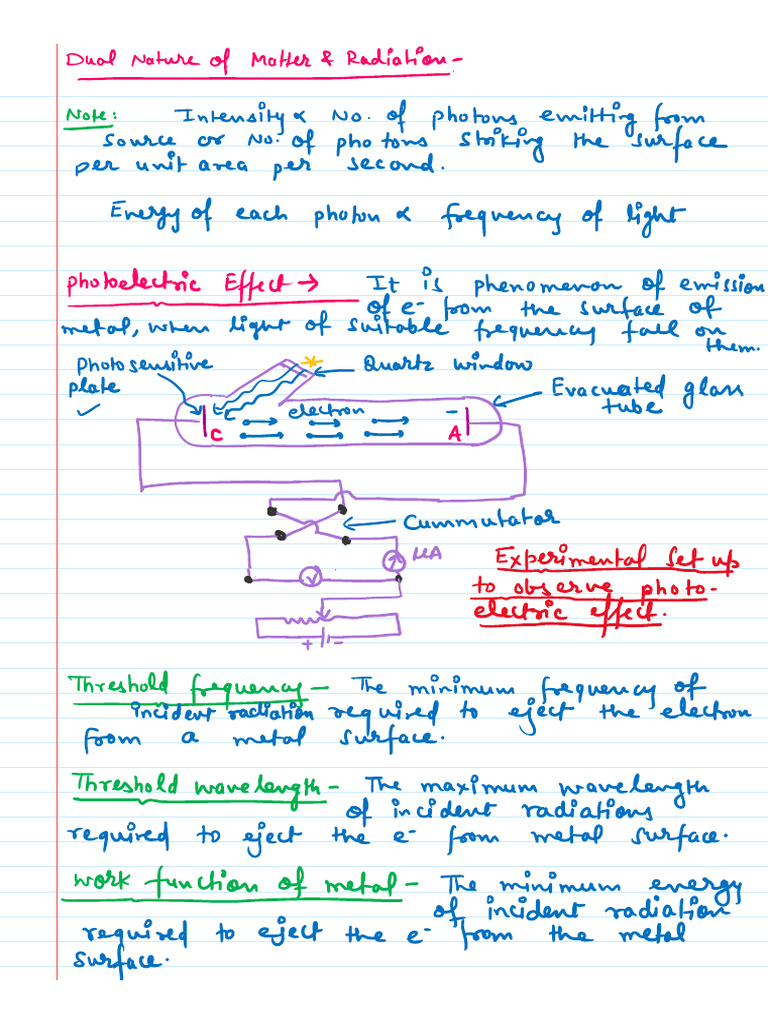 Dual Nature of Matter & Radiation-
Note: Intensity ∝ No. of photons emitting from
source or No. of photons striking the surface
per unit area per second.
Energy of each photon ∝ frequency of light
Photoelectric Effect → It is phenomenon of emission
of e⁻ from the surface of
metal, when light of suitable frequency fall on
them.
Photosensitive
plate ✓
Quartz window
Evacuated glass
tube
electron
C
A
-
Cummutator
μA
V
+ -
Experimental set up
to observe photo-
electric effect.
Threshold frequency - The minimum frequency of
incident radiation required to eject the electron
from a metal surface.
Threshold wavelength - The maximum wavelength
of incident radiations
required to eject the e⁻ from metal surface.
Work function of metal - The minimum energy
of incident radiation
required to eject the e⁻ from the metal
surface.